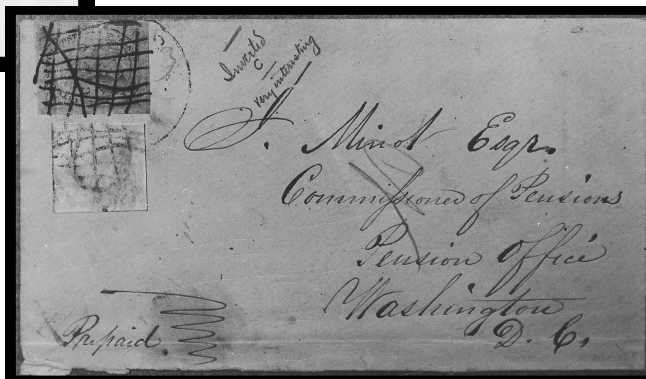 Inverted
C
Very interesting
J. Minot Esqr.
Commissioner of Pensions
Pension Office
Washington
D. C.
Prepaid.